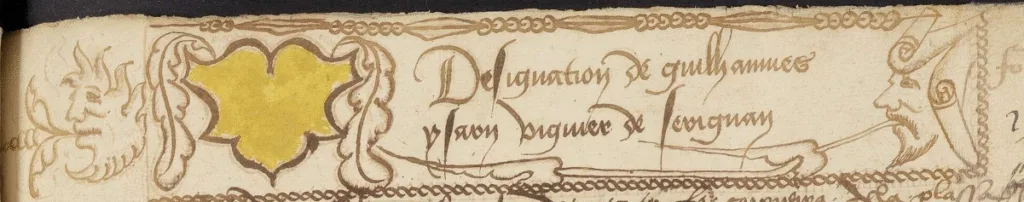 Designation de guilhaumes
ysarn viguier de serignan